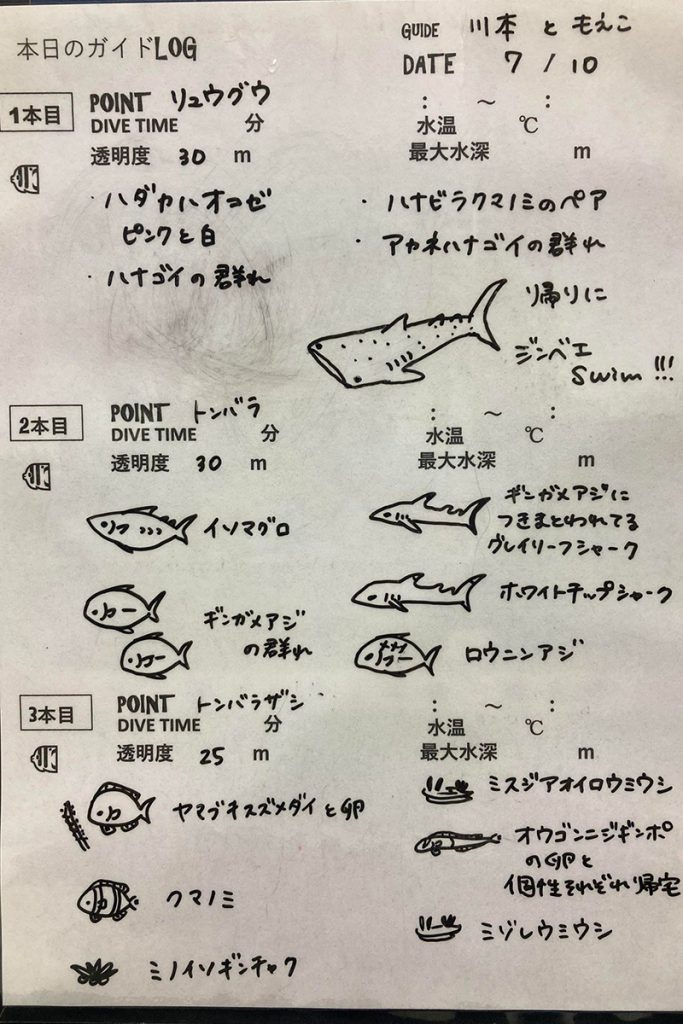 本日のガイドLOG
GUIDE 川本 と もえこ
DATE 7 / 10
1本目
POINT リュウグウ
DIVE TIME 分
透明度 30 m
: ～ :
水温 ℃
最大水深 m
・ハダカハオコゼ
ピンクと白
・ハナゴイの群れ
・ハナビラクマノミのペア
・アカネハナゴイの群れ
帰りに
ジンベエ
Swim !!!
2本目
POINT トンバラ
DIVE TIME 分
透明度 30 m
: ～ :
水温 ℃
最大水深 m
イソマグロ
ギンガメアジ
の群れ
ギンガメアジに
つきまとわれてる
グレイリーフシャーク
ホワイトチップシャーク
ロウニンアジ
3本目
POINT トンバラザシ
DIVE TIME 分
透明度 25 m
: ～ :
水温 ℃
最大水深 m
ヤマブキスズメダイと卵
クマノミ
ミノイソギンチャク
ミスジアオイロウミウシ
オウゴンニジギンポ
の卵と
個性それぞれ帰宅
ミゾレウミウシ